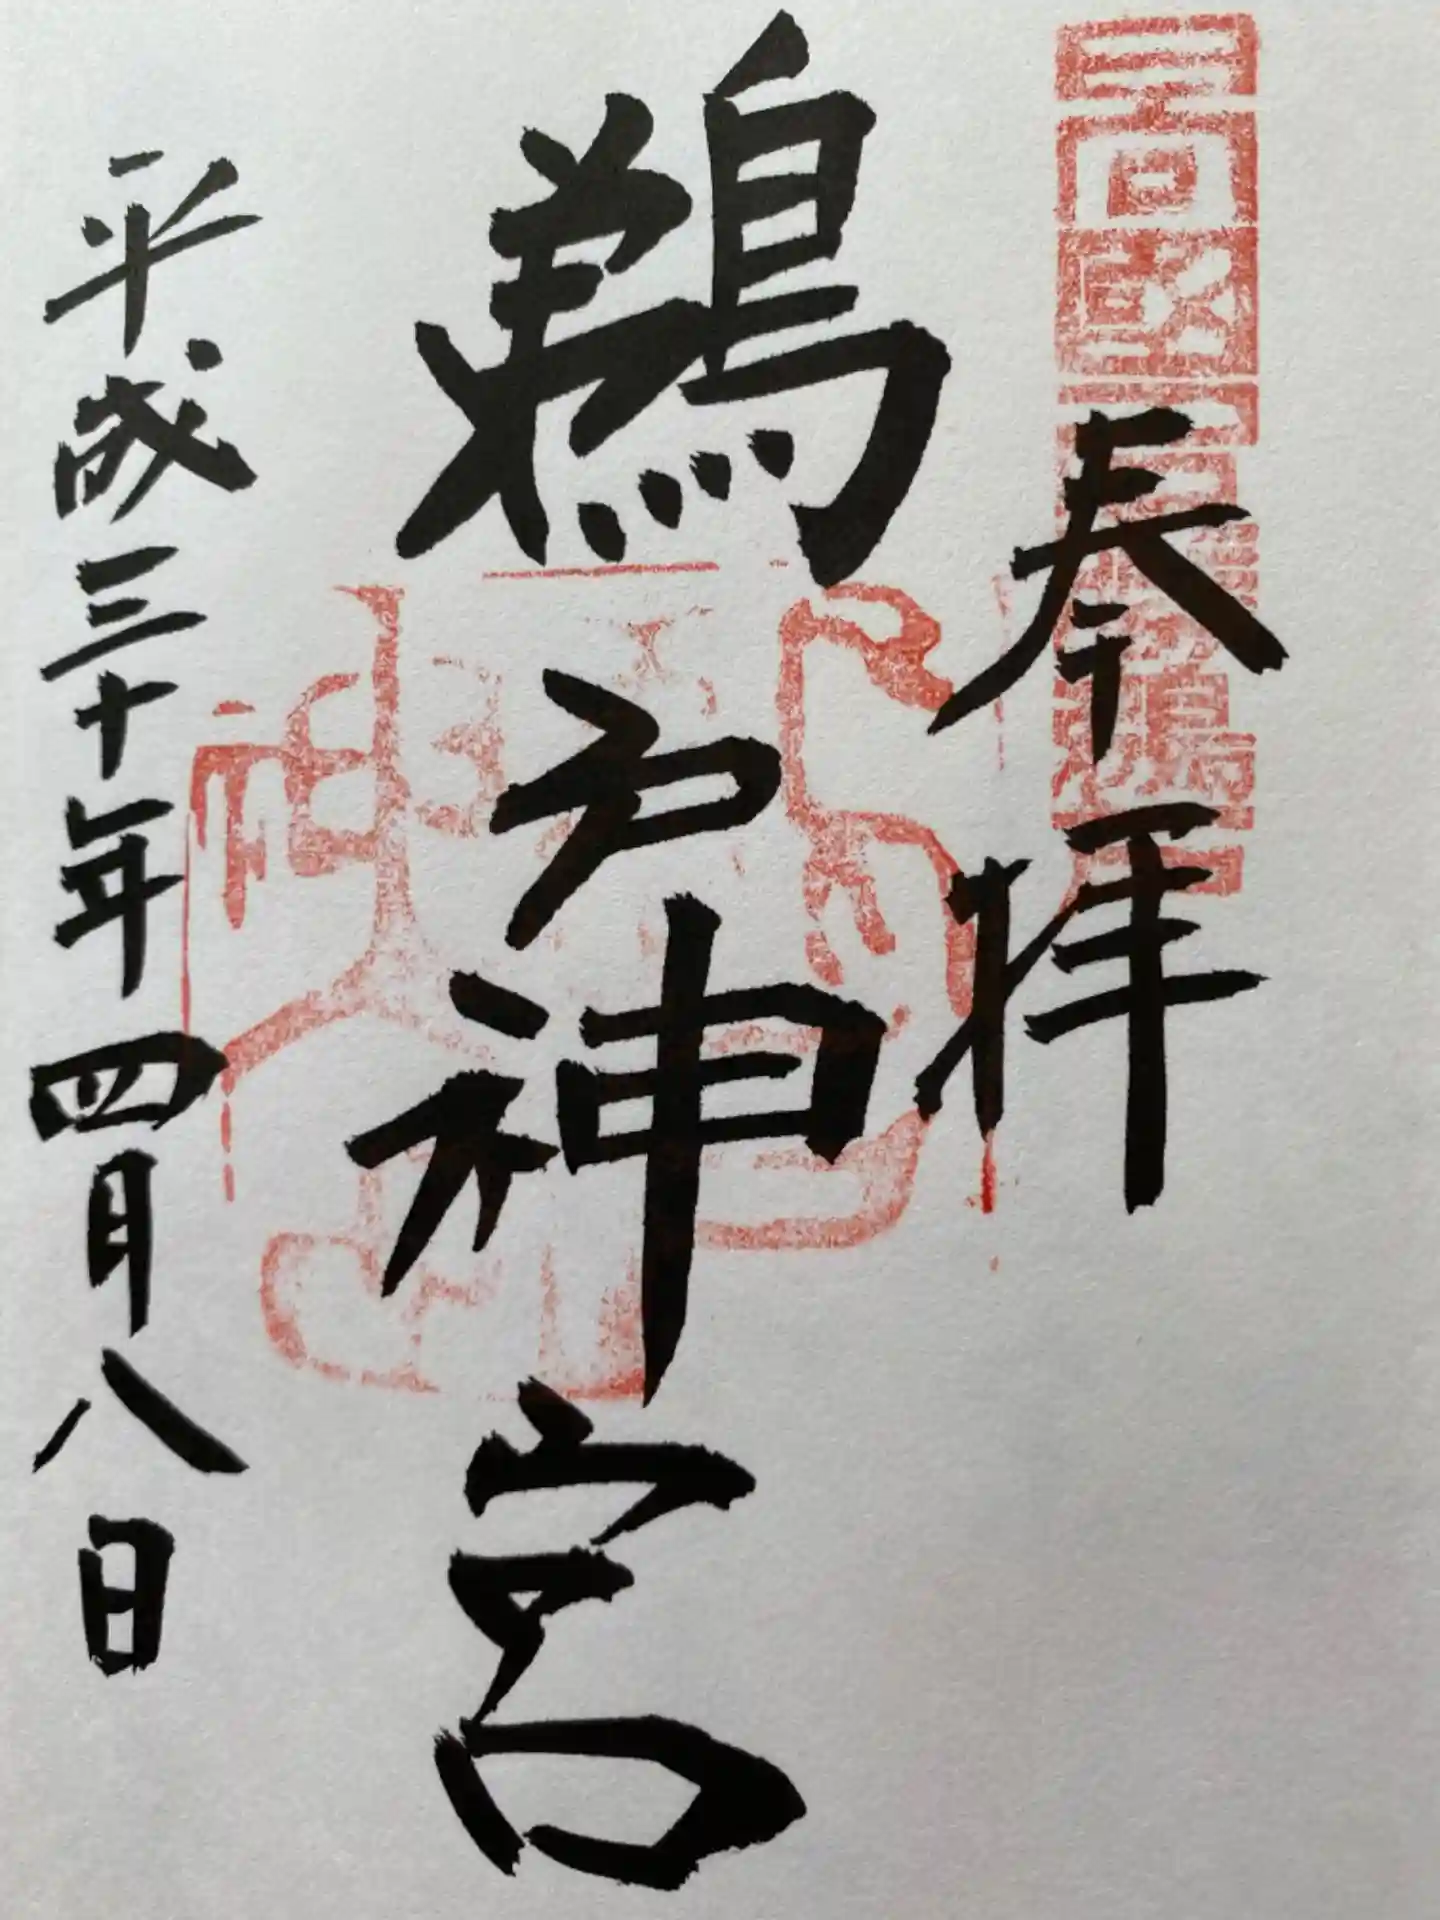 奉拝
鵜戸神宮
平成三十年四月八日